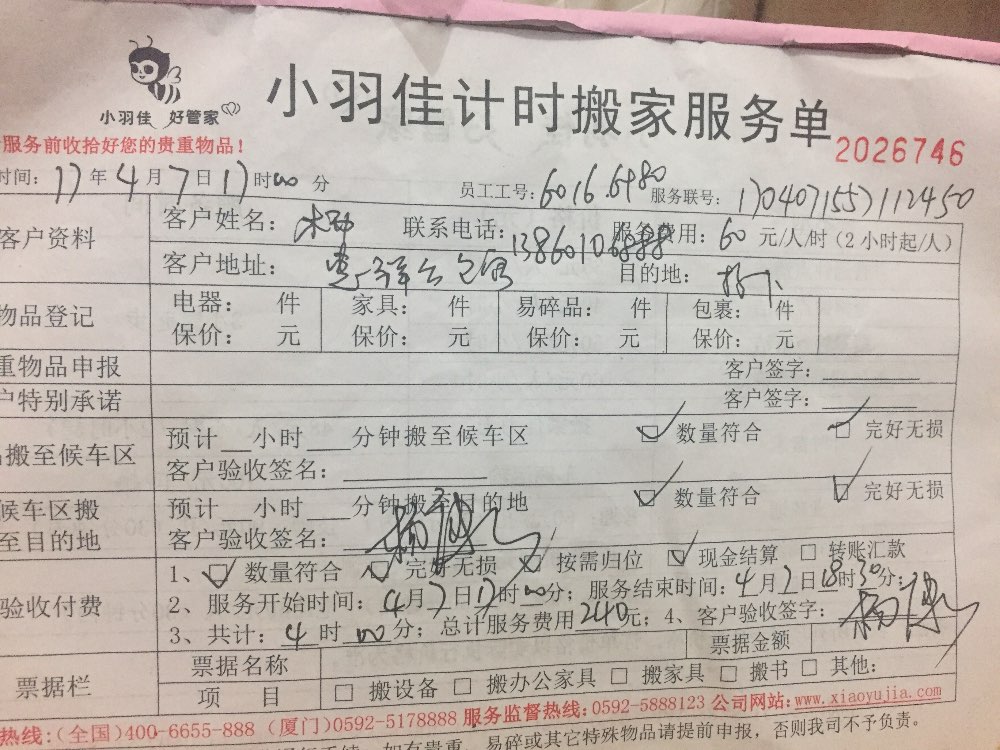 小羽佳 好管家
小羽佳计时搬家服务单
服务前收拾好您的贵重物品！
2026746
时间：17年4月7日17时00分 员工工号：60166980 服务联号：1704071557112450
客户资料
客户姓名： 联系电话：13860106888 服务费用：60元/人/时（2小时起/人）
客户地址： 目的地：
物品登记
电器： 件 家具： 件 易碎品： 件 包裹： 件
保价： 元 保价： 元 保价： 元 保价： 元
重物品申报 客户签字：
户特别承诺 客户签字：
搬至候车区
预计__小时___分钟搬至候车区 数量符合 完好无损
客户验收签名：
候车区搬至目的地
预计__小时___分钟搬至目的地 数量符合 完好无损
客户验收签名：
验收付费
1、数量符合 完好无损 按需归位 现金结算 转账汇款
2、服务开始时间：4月7日17时00分；服务结束时间：4月7日18时30分；
3、共计：4时00分；总计服务费用240元；4、客户验收签字：
票据栏
票据名称 票据金额
项 目 搬设备 搬办公家具 搬家具 搬书 其他：
热线：（全国）400-6655-888（厦门）0592-5178888 服务监督热线：0592-5888123 公司网站：www.xiaoyujia.com
如有贵重、易碎或其它特殊物品请提前申报，否则我司不予负责。